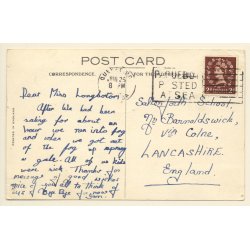 POST CARD
CORRESPONDENCE
AUG 25
8 PM
PAQUEBOT
POSTED
AT SEA
Dear Miss Longbottom
After we had been
sailing for about an
hour we ran into fog
and when we got out
of the fog up sprang
a gale. All of us kids
were sick. Thanks for
message of good wishes
nice of you all to think of
us. Bye Bye for now
School
Nr Barnoldswick,
Via Colne,
LANCASHIRE
England.